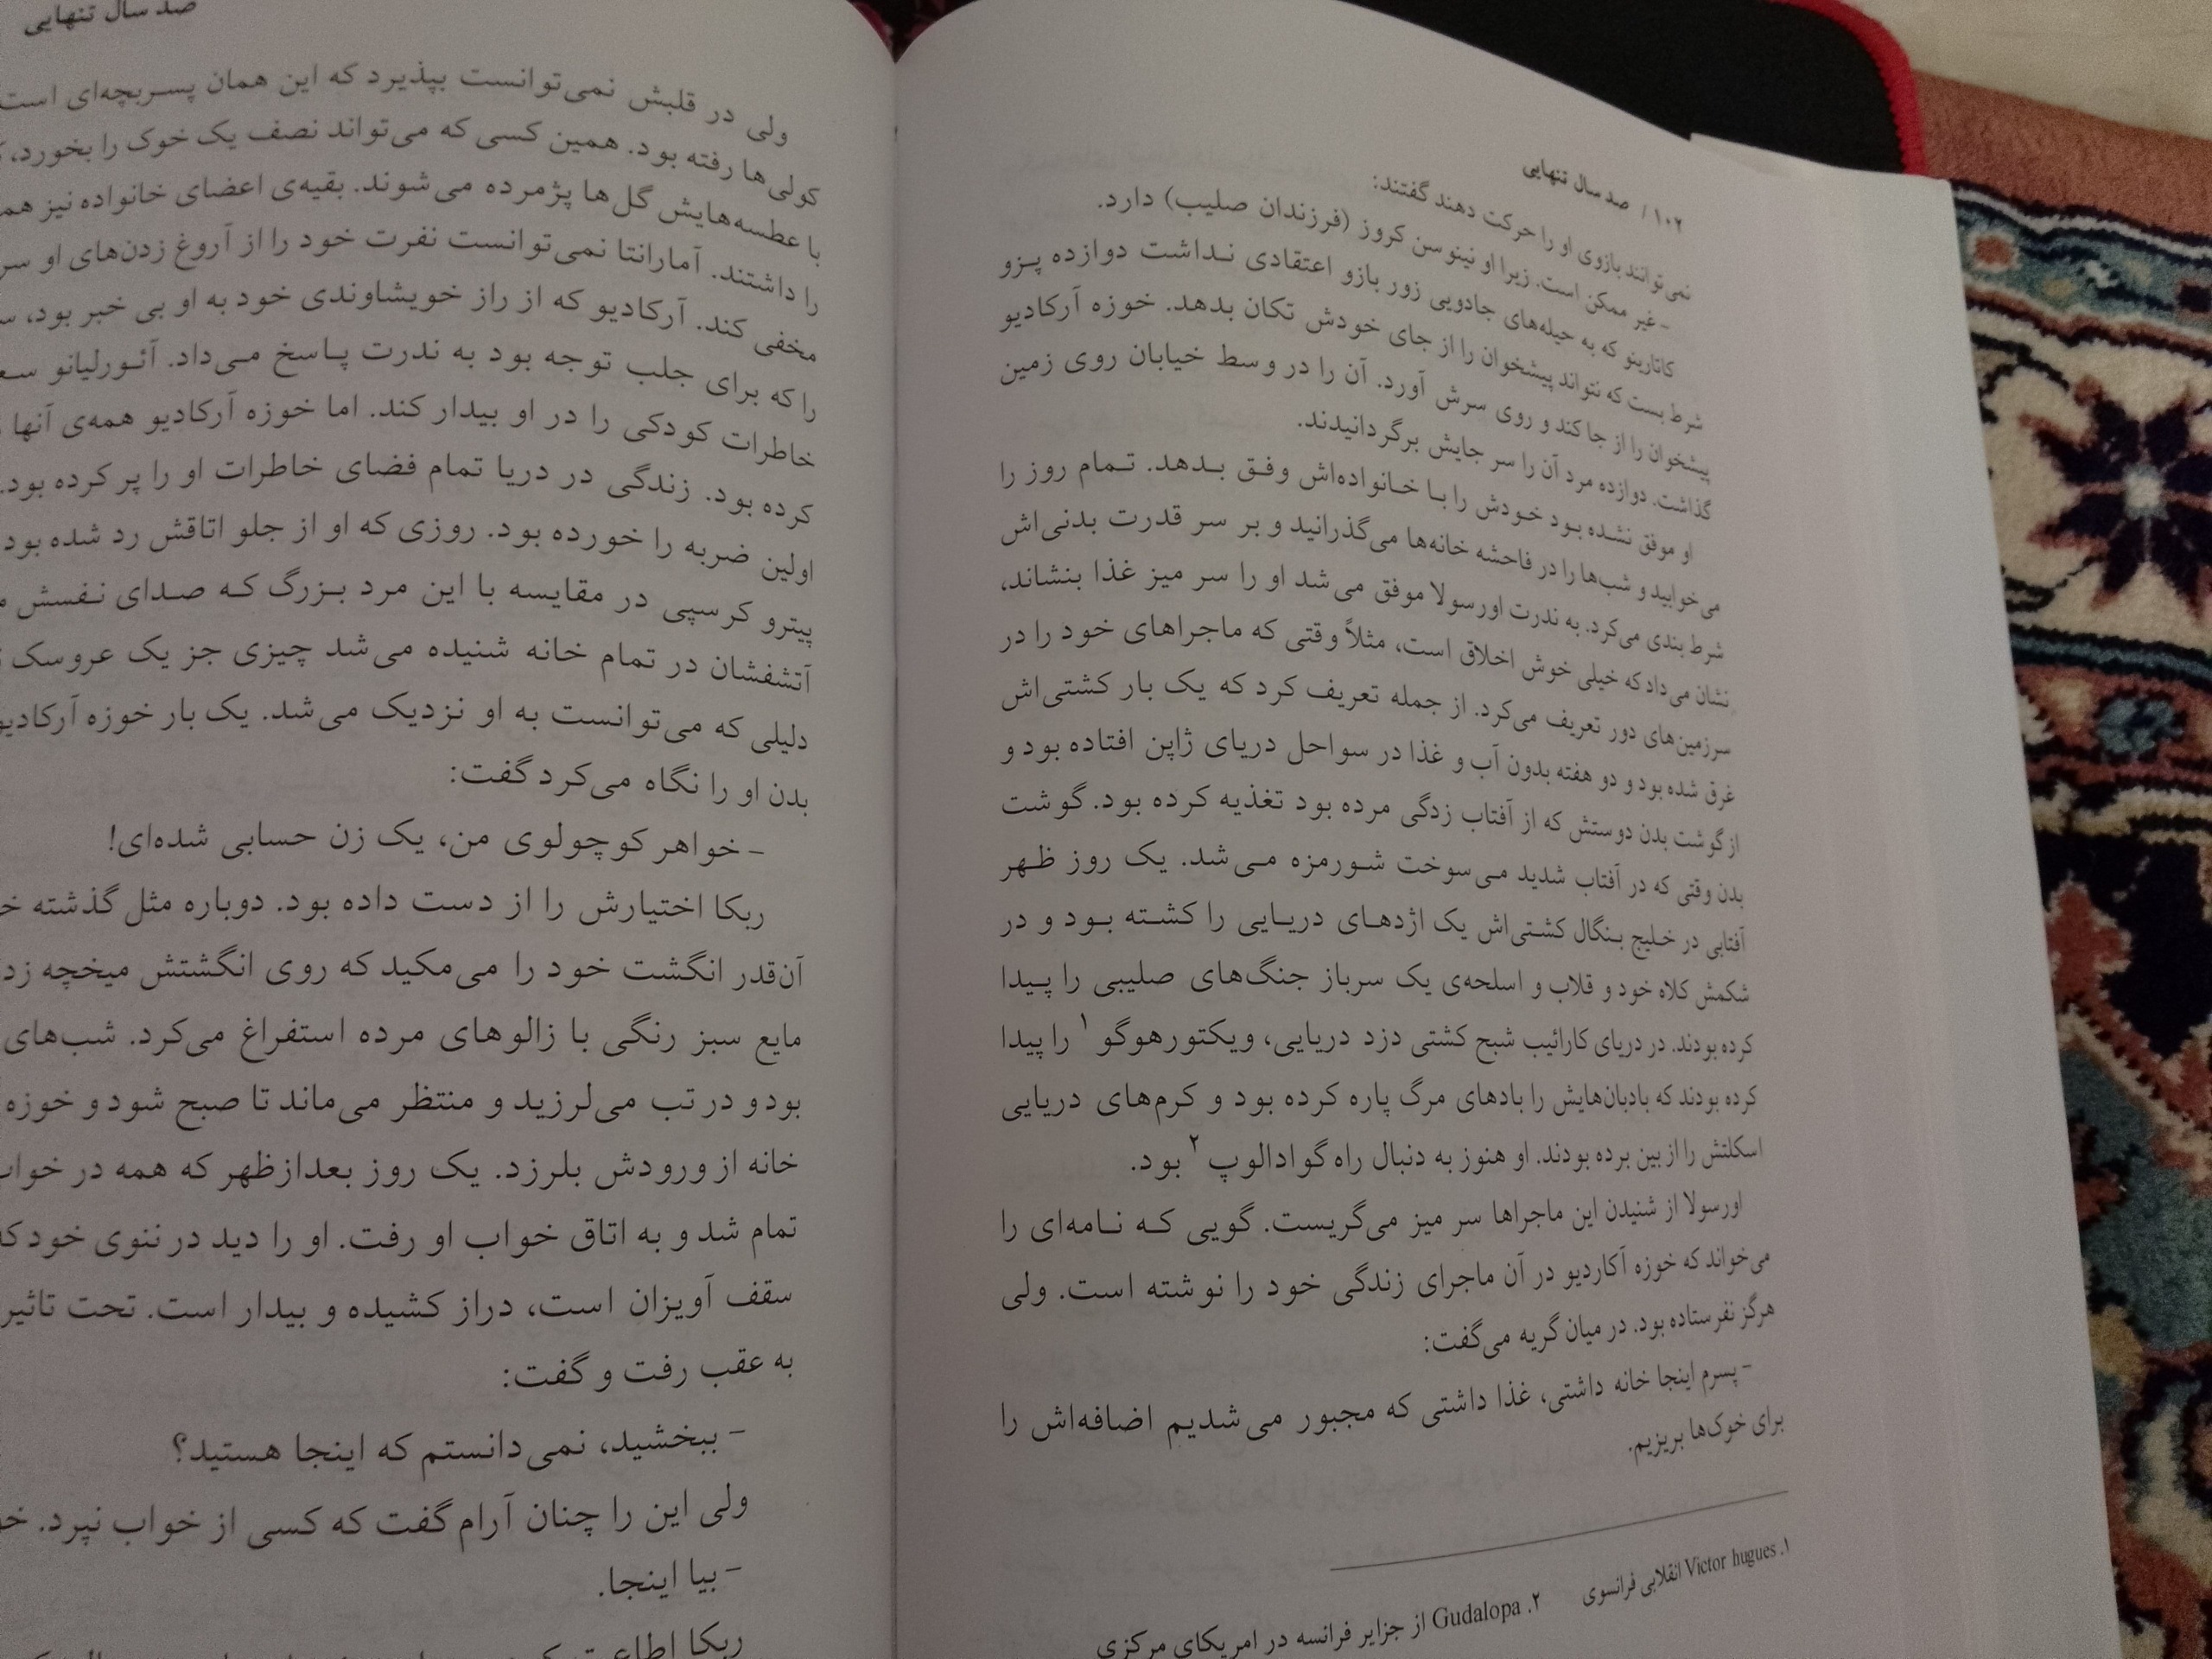 ۱۰۲ / صد سال تنهایی
نمی‌توانند بازوی او را حرکت دهند گفتند:
- غیر ممکن است. زیرا او نینوسن کروز (فرزندان صلیب) دارد.
کاتارینو که به حیله‌های جادویی زور بازو اعتقادی نداشت دوازده پزو
شرط بست که نتواند پیشخوان را از جای خودش تکان بدهد. خوزه آرکادیو
پیشخوان را از جا کند و روی سرش آورد. آن را در وسط خیابان روی زمین
گذاشت. دوازده مرد آن را سر جایش برگردانیدند.
او موفق نشده بود خودش را با خانواده‌اش وفق بدهد. تمام روز را
می‌خوابید و شب‌ها را در فاحشه خانه‌ها می‌گذرانید و بر سر قدرت بدنی‌اش
شرط بندی می‌کرد. به ندرت اورسولا موفق می‌شد او را سر میز غذا بنشاند،
نشان می‌داد که خیلی خوش اخلاق است، مثلاً وقتی که ماجراهای خود را در
سرزمین‌های دور تعریف می‌کرد. از جمله تعریف کرد که یک بار کشتی‌اش
غرق شده بود و دو هفته بدون آب و غذا در سواحل دریای ژاپن افتاده بود و
از گوشت بدن دوستش که از آفتاب زدگی مرده بود تغذیه کرده بود. گوشت
بدن وقتی که در آفتاب شدید می‌سوخت شورمزه می‌شد. یک روز ظهر
آفتابی در خلیج بنگال کشتی‌اش یک اژدهای دریایی را کشته بود و در
شکمش کلاه خود و قلاب و اسلحه‌ی یک سرباز جنگ‌های صلیبی را پیدا
کرده بودند. در دریای کارائیب شبح کشتی دزد دریایی، ویکتورهوگو ۱ را پیدا
کرده بودند که بادبان‌هایش را بادهای مرگ پاره کرده بود و کرم‌های دریایی
اسکلتش را از بین برده بودند. او هنوز به دنبال راه گوادالوپ ۲ بود.
اورسولا از شنیدن این ماجراها سر میز می‌گریست. گویی که نامه‌ای را
می‌خواند که خوزه آکاردیو در آن ماجرای زندگی خود را نوشته است. ولی
هرگز نفرستاده بود. در میان گریه می‌گفت:
- پسرم اینجا خانه داشتی، غذا داشتی که مجبور می‌شدیم اضافه‌اش را
برای خوک‌ها بریزیم.
۱. Victor hugues انقلابی فرانسوی ۲. Gudalopa از جزایر فرانسه در امریکای مرکزی
صد سال تنهایی
ولی در قلبش نمی‌توانست بپذیرد که این همان پسربچه‌ای است
کولی‌ها رفته بود. همین کسی که می‌تواند نصف یک خوک را بخورد،
با عطسه‌هایش گل‌ها پژمرده می‌شوند. بقیه‌ی اعضای خانواده نیز
را داشتند. آمارانتا نمی‌توانست نفرت خود را از آروغ زدن‌های او
مخفی کند. آرکادیو که از راز خویشاوندی خود به او بی خبر بود،
را که برای جلب توجه بود به ندرت پاسخ می‌داد. آئورلیانو
خاطرات کودکی را در او بیدار کند. اما خوزه آرکادیو همه‌ی آنها
کرده بود. زندگی در دریا تمام فضای خاطرات او را پر کرده بود.
اولین ضربه را خورده بود. روزی که او از جلو اتاقش رد شده بود
پیترو کرسپی در مقایسه با این مرد بزرگ که صدای نفسش
آتشفشان در تمام خانه شنیده می‌شد چیزی جز یک عروسک
دلیلی که می‌توانست به او نزدیک می‌شد. یک بار خوزه آرکادیو
بدن او را نگاه می‌کرد گفت:
- خواهر کوچولوی من، یک زن حسابی شده‌ای!
ربکا اختیارش را از دست داده بود. دوباره مثل گذشته
آن‌قدر انگشت خود را می‌مکید که روی انگشتش میخچه
مایع سبز رنگی با زالوهای مرده استفراغ می‌کرد. شب‌های
بود و در تب می‌لرزید و منتظر می‌ماند تا صبح شود و خوزه
خانه از ورودش بلرزد. یک روز بعدازظهر که همه در خواب
تمام شد و به اتاق خواب او رفت. او را دید در ننوی خود که
سقف آویزان است، دراز کشیده و بیدار است. تحت تاثیر
به عقب رفت و گفت:
- ببخشید، نمی‌دانستم که اینجا هستید؟
ولی این را چنان آرام گفت که کسی از خواب نپرد.
- بیا اینجا.
ربکا اطاعت